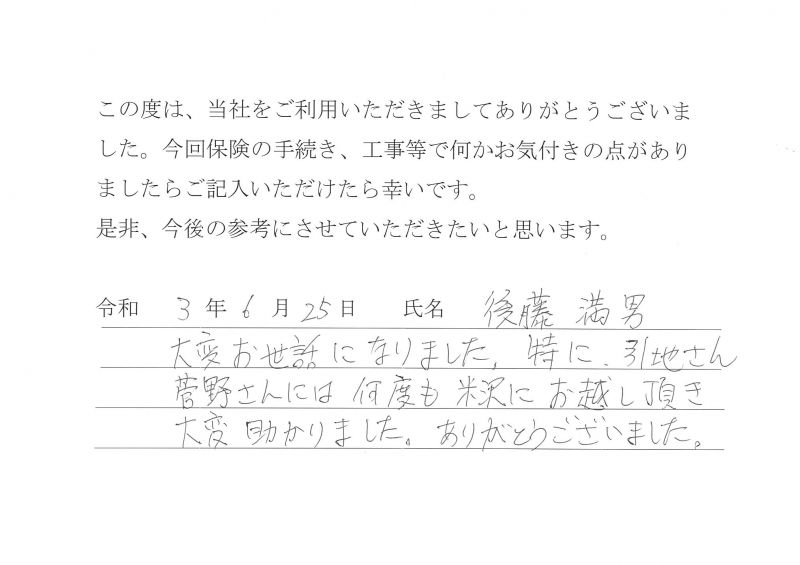 この度は、当社をご利用いただきましてありがとうございま
した。今回保険の手続き、工事等で何かお気付きの点があり
ましたらご記入いただけたら幸いです。
是非、今後の参考にさせていただきたいと思います。
令和 3 年 6 月 25 日 氏名 後藤 満男
大変お世話になりました。特に、引地さん
菅野さんには何度も米沢にお越し頂き
大変助かりました。ありがとうございました。